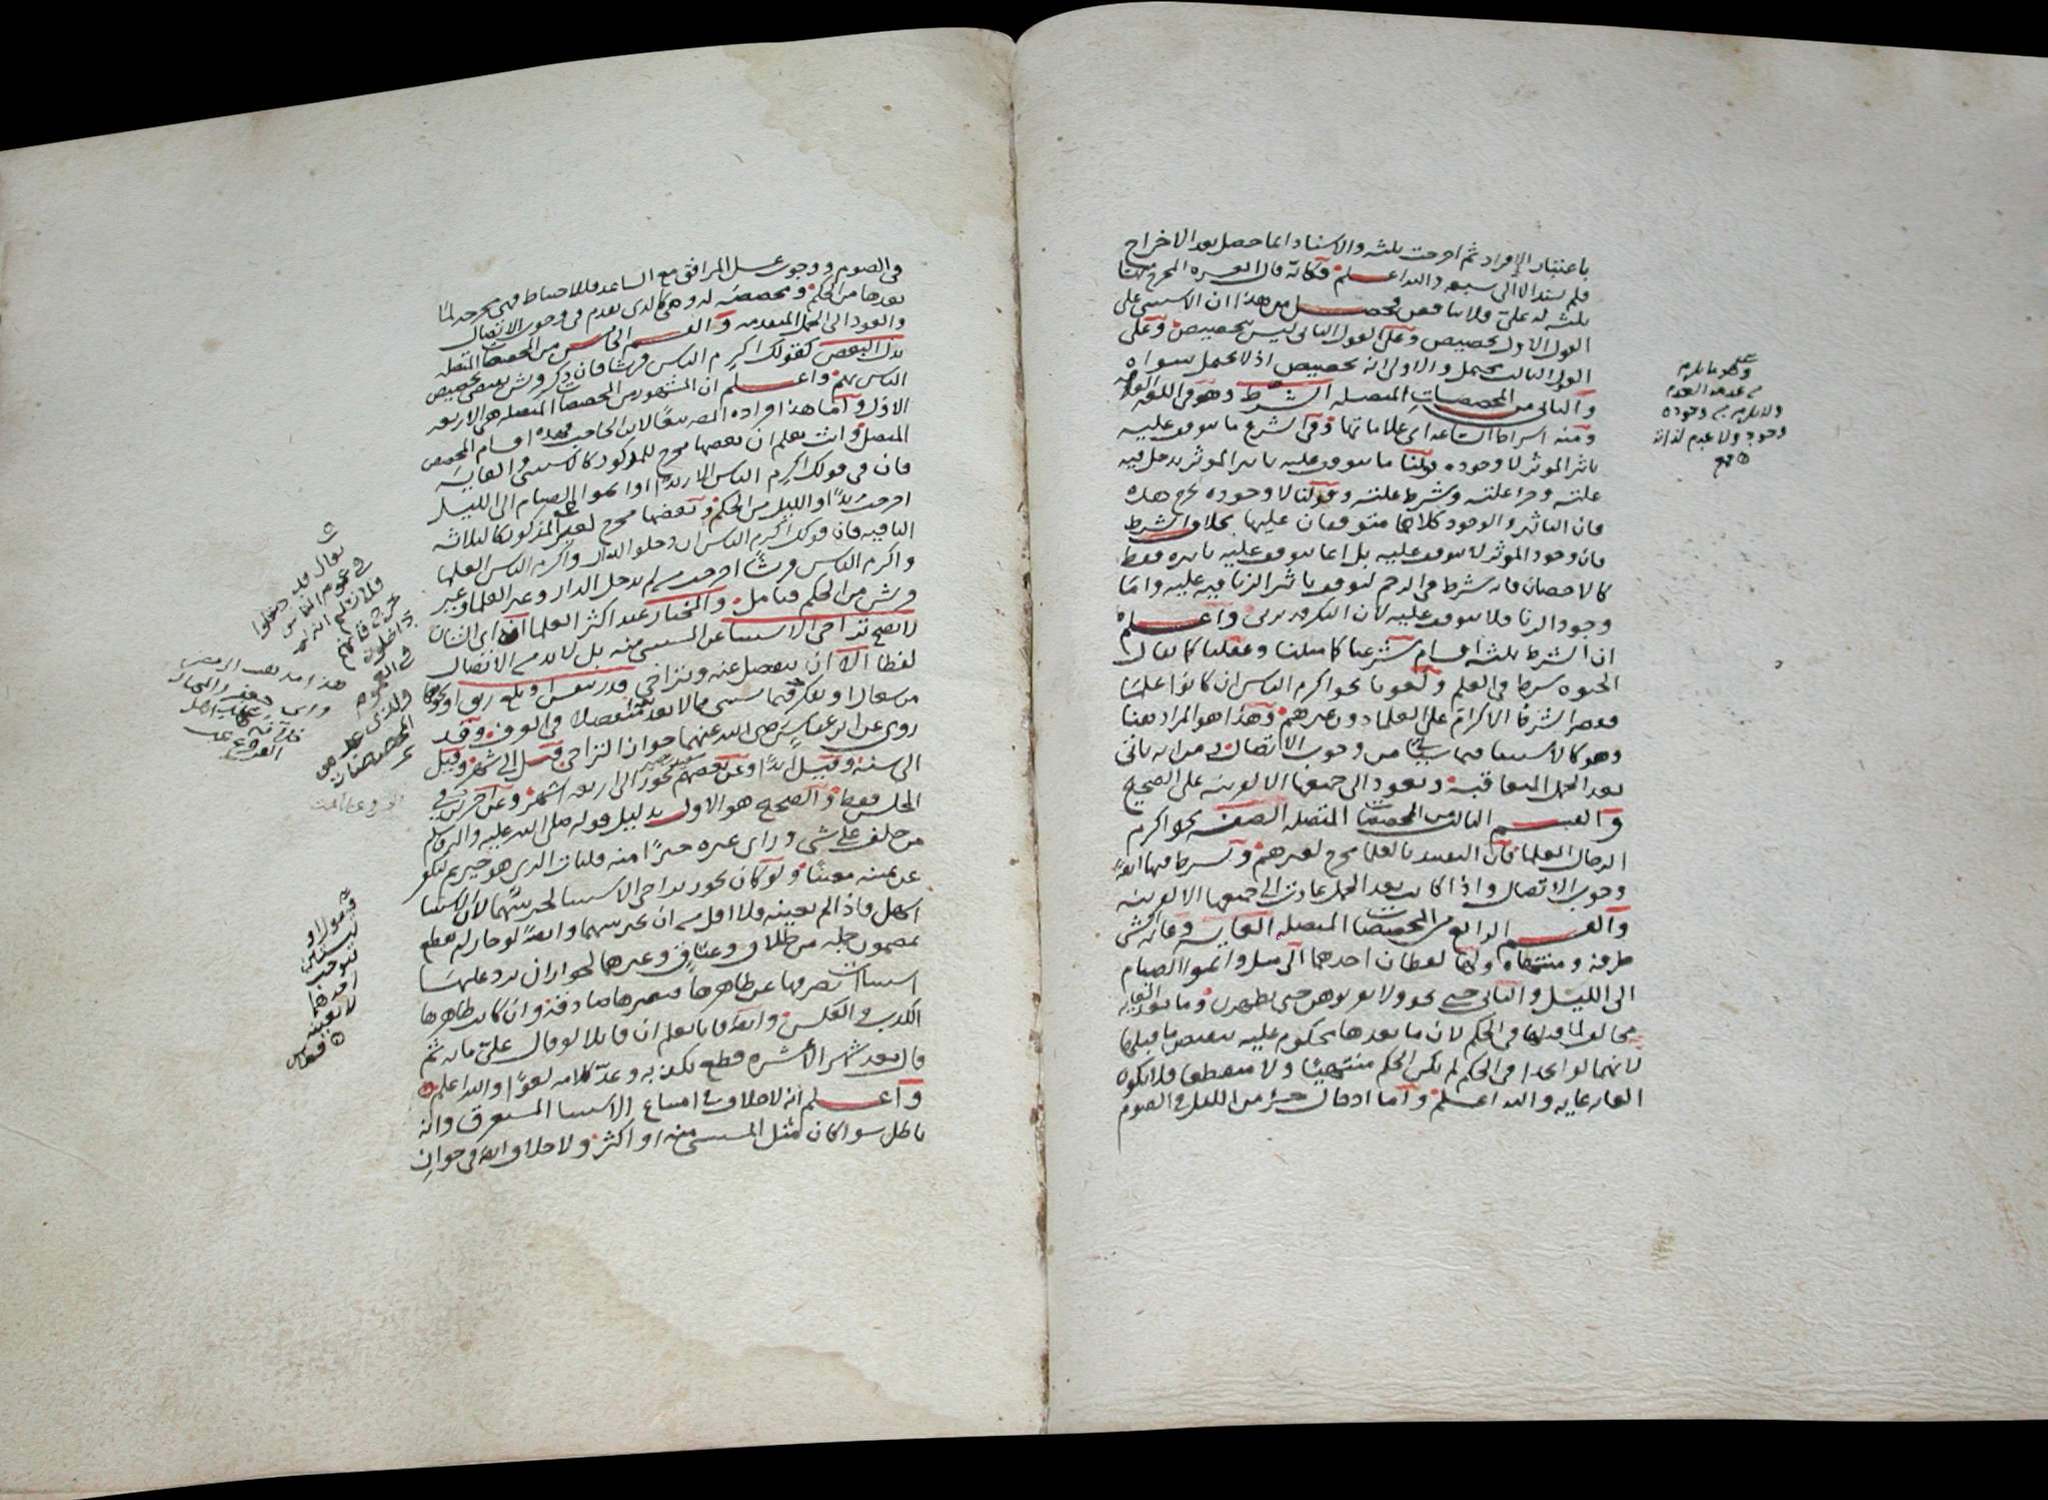 باعتبار الافراد ثم اخرجت ثلثه والاسناد انما حصل بعد الاخراج
فلم يسند الا الى سبعه والله اعلم فكانه قال العشره المخرج منها
ثلثه له علي فلا تناقض فحصل من هذا ان الاستثنى على
القول الاول تخصيص وعلى القول الثاني ليس بتخصيص وعلى
القول الثالث يحتمل والاولى انه تخصيص اذ لا يحتمل سواه
والثاني من المخصصات المتصله الشرط وهو في اللغه العلامه
ومنه اشراط الساعه اي علاماتها وفي الشرع ما يتوقف عليه
تاثير الموثر لا وجوده قولنا ما يتوقف عليه تاثير الموثر يدخل فيه
علته وجزا علته وشرط علته وقولنا لا وجوده تخرج هذه
فان التاثير والوجود كلاهما متوقفان عليها بخلاف الشرط
فان وجود الموثر لا يتوقف عليه بل انما يتوقف عليه تاثيره فقط
كالاحصان فانه شرط في الرجم لتوقف تاثير الزنا فيه عليه واما
وجود الزنا فلا يتوقف عليه لان البكر قد يزني واعلم
ان الشرط ثلثه اقسام شرعيا كما مثلنا وعقليا كما يقال
الحيوه شرط في العلم ولغويا نحو اكرم الناس ان كانوا علما
فقصر الشرط الاكرام على العلما دون غيرهم وهذا هو المراد هنا
وهو كالاستثنا فيما سياتي من وجوب الاتصال وفي انه ياتي
بعد الجمل المتعاقبه ويعود الى جميعها الا لقرينه على الصحيح
والقسم الثالث من المخصصات المتصله الصفه نحو اكرم
الرجال العلما فان التقييد بالعلما مخرج لغيرهم ويشرط فيها ايضا
وجوب الاتصال واذا كانت بعد الجمل عادت الى جميعها الا لقرينه
والقسم الرابع من المخصصات المتصله الغايه وغايه الشي
طرفه ومنتهاه ولها لفظان احدهما الى مثل واتموا الصيام
الى الليل والثاني حتى نحو ولا تقربوهن حتى يطهرن وما بعد الغايه
مخالف لما قبلها في الحكم لان ما بعدها محكوم عليه بنقيض ما قبلها
لانهما لو اتحدا في الحكم لم يكن الحكم منتهيا ولا منقطعا فلا تكون
الغايه غايه والله اعلم واما ادخال جزء من الليل في الصوم
وهو ما يلزم
من عدمه العدم
ولا يلزم من وجوده
وجود ولا عدم لذاته
في الصوم ووجوب غسل المرافق مع الساعد فللاحتياط فهي مخرجه لما
بعدها من الحكم ومخصصه له وهي كالذي تقدم في وجوب الاتصال
والعود الى الجمل المتقدمه والقسم الخامس من المخصصات المتصله
بدل البعض كقولك اكرم الناس قريشا فان ذكر قريش يقتضي تخصيص
الناس بهم واعلم ان المشهور من المخصصات المتصله هي الاربعه
الاول واما هذا فزاده المصنف تبعا لابن الحاجب فهذه اقسام المخصص
المتصل وانت تعلم ان بعضها مخرج للمذكور كالاستثنى والغايه
فان في قولك اكرم الناس الا زيدا او اتموا الصيام الى الليل
اخرجت زيدا والليل من الحكم وبعضها مخرج لغير المذكور كالثلاثه
الباقيه فان قولك اكرم الناس ان دخلوا الدار واكرم الناس العلما
واكرم الناس قريشا اخرجت من لم يدخل الدار وغير العلما وغير
قريش من الحكم فتامل والمختار عند اكثر العلما انه اي الشان
لا يصح تراخي الاستثنا عن المستثنى منه بل لا بد من الاتصال
لفظا الا ان ينفصل عنه ويتراخى قدر تنفس او بلع ريق او نحوهما
من سعال او تفكر فيما يستثنى مما لا يعد منفصلا في العرف وقد
روى عن ابن عباس رضي الله عنهما جواز التراخي قيل الى شهر وقيل
الى سنه وقيل ابدا وعن بعضهم يجوز الى اربعه اشهر وعن اخرين في
المجلس فقط والصحيح هو الاول بدليل قوله صلى الله عليه واله وسلم
من حلف على شي وراى غيره خيرا منه فليات الذي هو خير ثم ليكفر
عن يمينه معينا ولو كان يجوز تراخي الاستثنا لخير بينهما لان الاستثنا
اسهل فاذا لم يعينه فلا اقل من ان يخير بينهما وايضا لو جاز لم يقطع
بمضمون جمله من طلاق وعتاق وغيرهما لجواز ان يرد عليها
استثنا يصرفها عن ظاهرها فتصيرها صادقه وان كانت ظاهرها
الكذب والعكس وايضا فانا نعلم ان قائلا لو قال علي مائه ثم
قال بعد شهر الا عشره قطع بكذبه وعد كلامه لغوا والله اعلم
واعلم انه لا خلاف في امتناع الاستثنا المستغرق وانه
باطل سواء كان مثل المستثنى منه او اكثر ولا خلاف ايضا في جواز